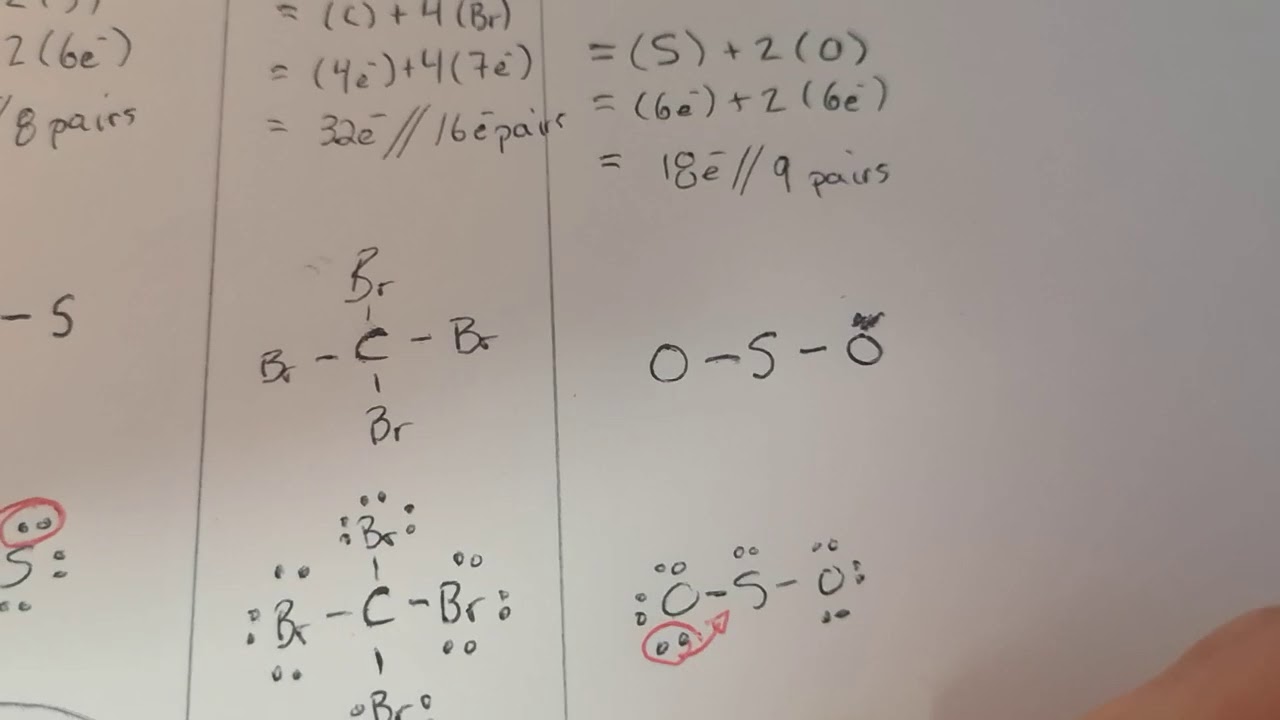 2(6e⁻)
// 8 pairs
– S
S:
= (C) + 4(Br)
= (4e⁻)+4(7e⁻)
= 32e⁻// 16e⁻pairs
Br
Br – C – Br
Br
:Br:
:Br – C – Br:
Br
= (S) + 2(O)
= (6e⁻) + 2(6e⁻)
= 18e⁻// 9 pairs
O – S – O
:O – S – O: